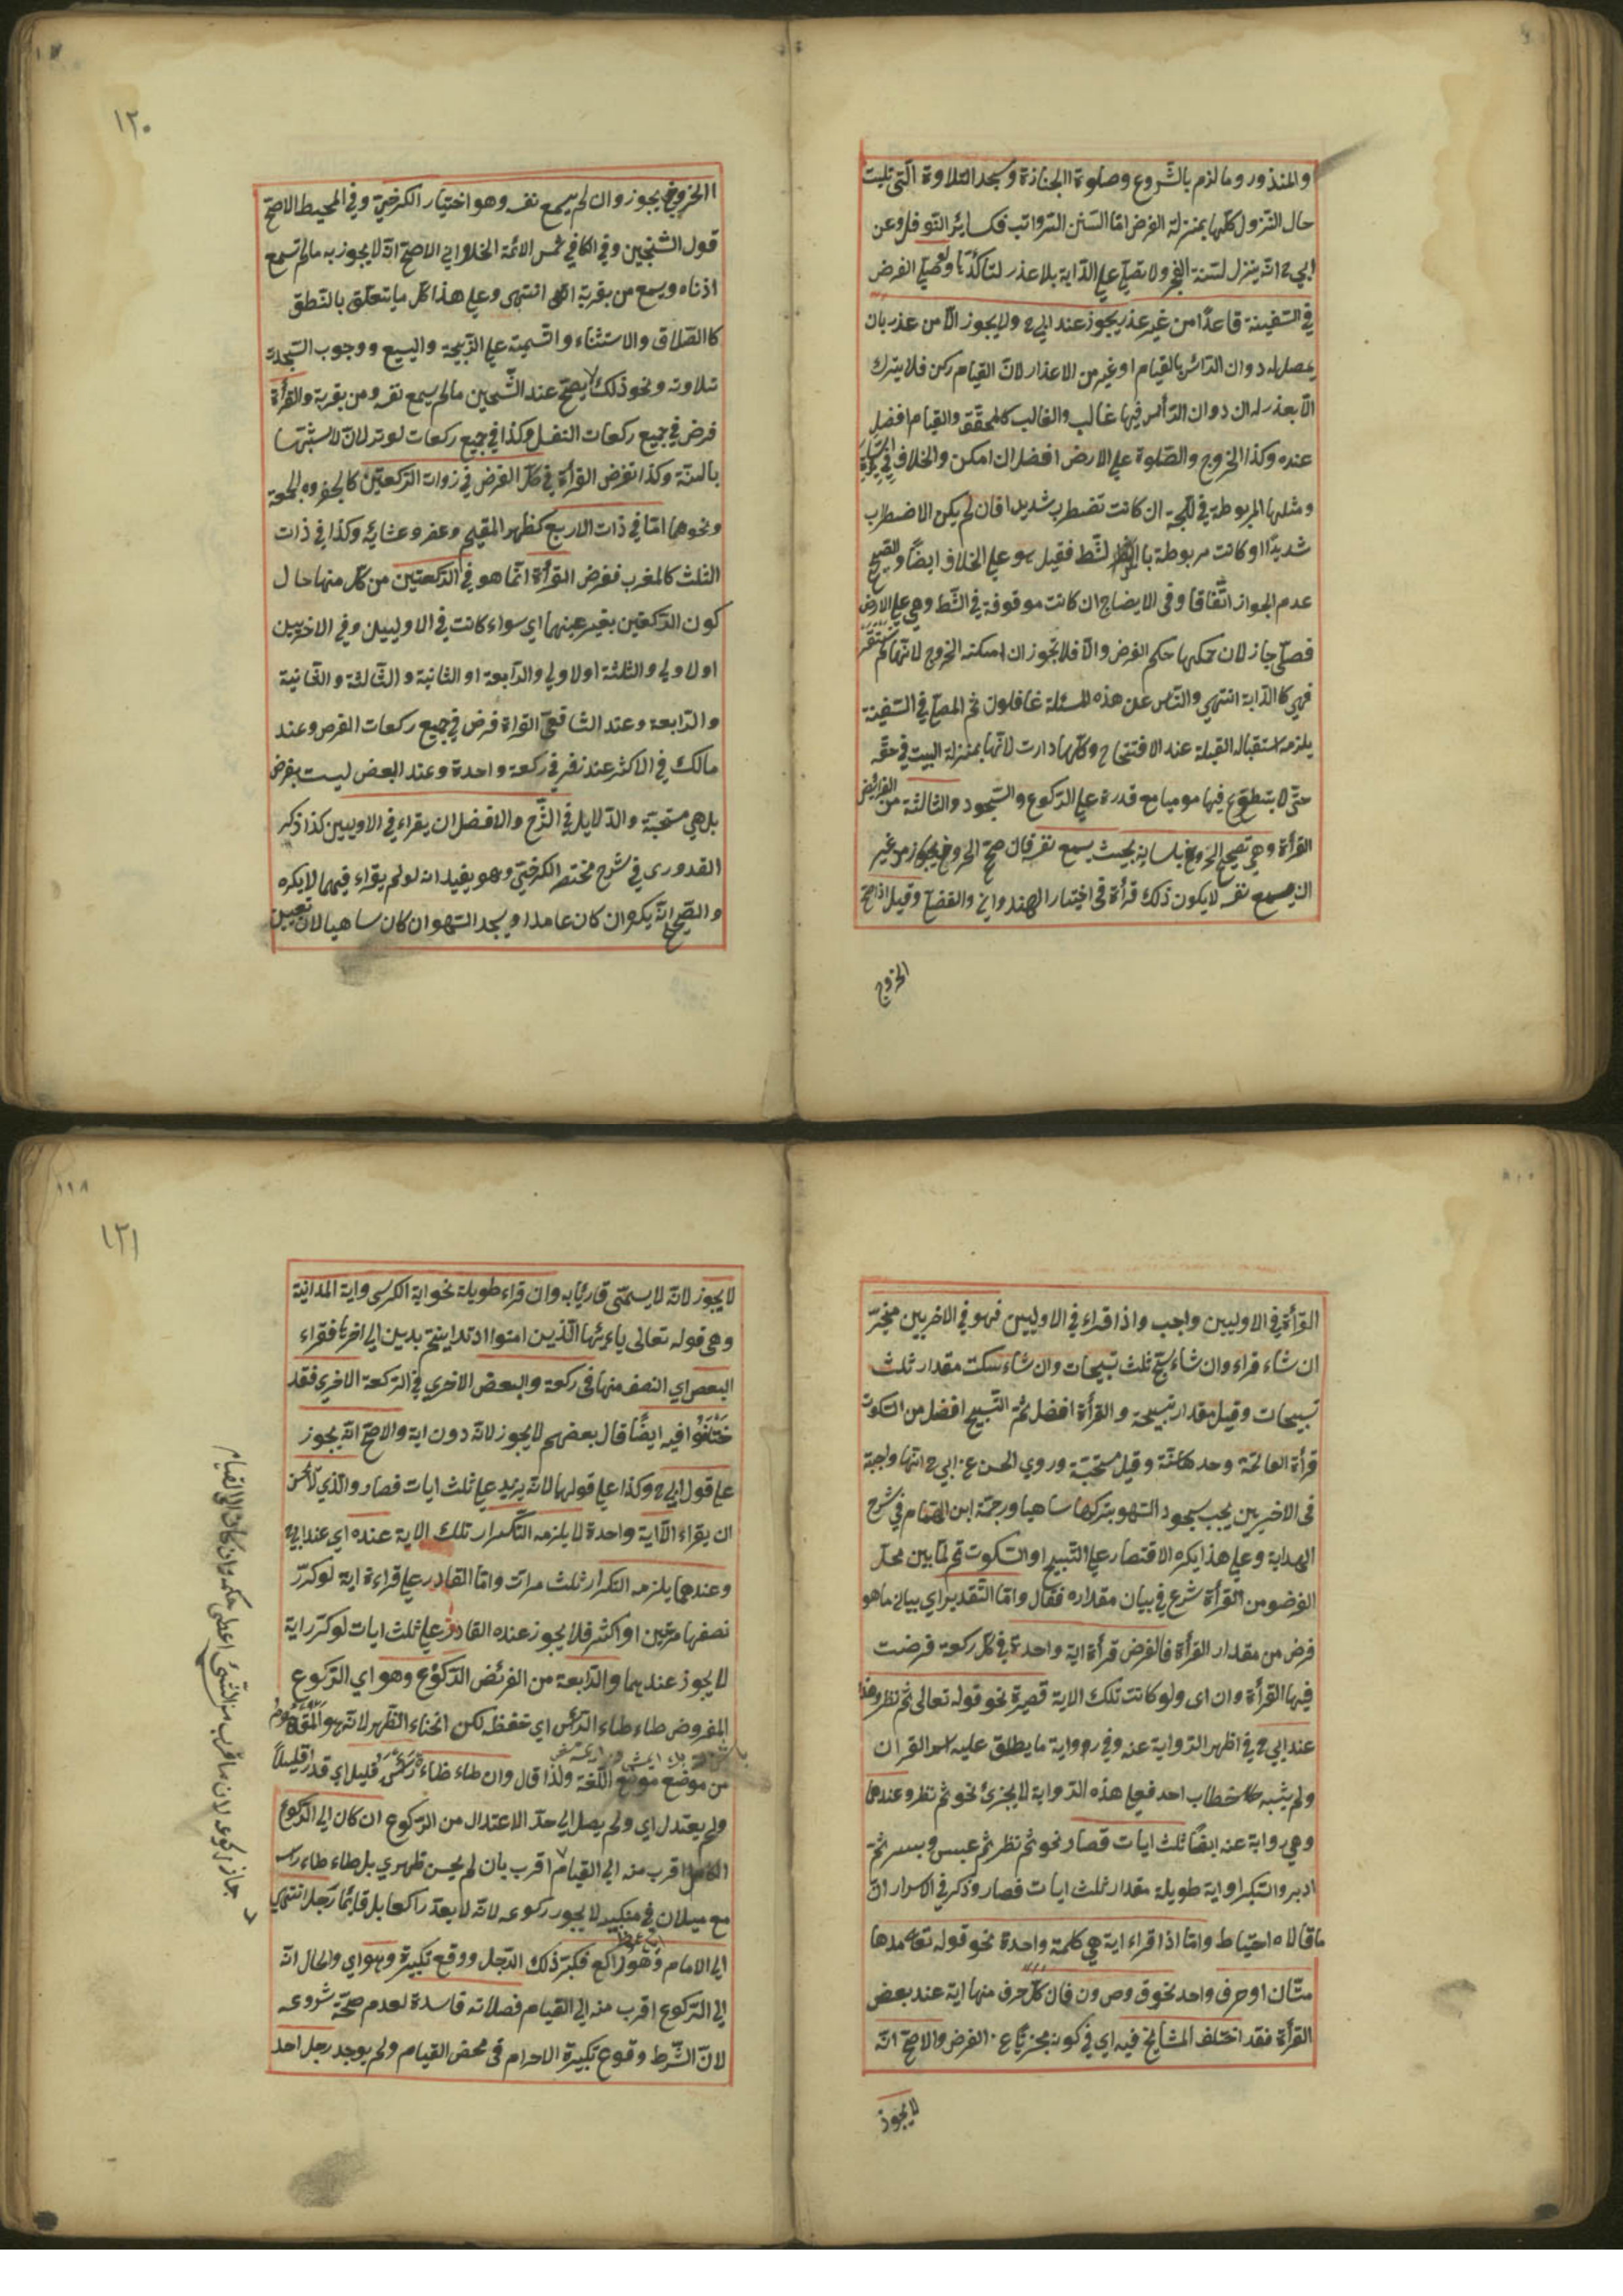 والمنذور وما لزم بالشّروع وصلوة الجنازة وسجد التلاوة الّتي تليت
حال النّزول كلّها بمنزلة الفرض امّا السّنن الرّواتب فكسائر النّوفل وعن
ابي ح انّه ينزل لسنة الفجر ولا تصلّي علي الدّابة بلا عذر لتأكّدها ولو صلّي الفرض
في السّفينة قاعدًا من غير عذر يجوز عند ابي ح ولا يجوز الّا من عذر بان
يحصل له دوان الدّأس بالقيام او غير من الاعذار لانّ القيام ركن فلا يترك
الّا بعذر له ان دوان الدّأس فيها غالب والغالب كالمحقّق والقيام افضل
عنده وكذا الخروج والصّلوة علي الارض افضل ان امكن والخلاف في
ومثلها المربوطة في اللّجة ان كانت تضطرب شديدا فان لم يكن الاضطراب
شديدًا او كانت مربوطة بالشّط فقيل هو علي الخلاف ايضًا والصّحيح
عدم الجواز اتّفاقا وفي الايضاح ان كانت موقوفة في الشّط وهي علي الارض
فصلّي جاز لان حكمها حكم الفرض والّا فلا تجوز ان امكنه الخروج لانّها لم تستقر
فهي كا الدّابة انتهي والنّاس عن هذه المسئلة غافلون ثم المصلّي في السّفينة
يلزمه استقبال القبلة عند الافتتاح وكلّما دارت لانّها بمنزلة البيت في حقّه
حتّي لا يتطوّع فيها موميا مع قدرة علي الرّكوع والسّجود والثالثة من الفرائض
القرأة وهي تصحيح الحروف بلسانه بحيث يسمع نفسه فان صحّح الحروف من غير
ان يسمع نفسه لا يكون ذلك قرأة في اختيار الهندواني والفضلي وقيل اذا صحّ
الخروج
١٢٠
الخروف يجوز وان لم يسمع نفسه وهو اختيار الكرخيّ وفي المحيط الاصحّ
قول الشّيخين وفي الكافي شمس الائمّة الحلواني الاصحّ انّه لا يجوز به ما لم تسمع
اذناه ويسمع من بقربه انتهي وعلي هذا كلّ ما يتعلّق بالنّطق
كا الطلاق والاستثناء والتّسمية علي الذّبيحة والبيع ووجوب السّجدة
تلاوته ونحو ذلك لا يصحّ عند الشّيخين ما لم يسمع نفسه ومن بقربه والقرأة
فرض في جميع ركعات النفل وكذا في جميع ركعات لوتر لانّ لا شبهها
بالسنّة وكذا تفرض القرأة في كلّ الفرض في ذوات الرّكعتين كا لفجر والجمعة
ونحوهما امّا في ذات الاربع كظهر المقيم وعصره وعشائه وكذا في ذات
الثلث كالمغرب ففرض القرأة انّما هو في الرّكعتين من كلّ منها حال
كون الرّكعتين بغير عينهما اي سواء كانت في الاوليين وفي الاخريين
او لاولي والثلثة او لاولي والرّابعة او الثانية والثّالثة و الثّانية
والرّابعة وعند الشافعيّ القراة فرض في جميع ركعات الفرض وعند
مالك في الاكثر عند زفر في ركعة واحدة وعند البعض ليست بفرض
بل هي مستحبّة والدّلايل في الشّرح والافضل ان يقراء في الاوليين كذا ذكره
القدوري في شرح مختصر الكرخيّ وهو يفيد انه لو لم يقراء فيهما لا يكره
والصّحيح انّه يكره ان كان عامدا ويسجد السّهو ان كان ساهيا لانّ تعيين
القرأة في الاوليين واجب واذا قراء في الاوليين فهو في الاخريين مخيّر
ان شاء قراء وان شاء سبّح ثلث تسبيحات وان شاء سكت مقدار ثلث
تسبيحات وقيل مقدار تسبيحة والقرأة افضل ثمّ التّسبيح افضل من السّكوت
قرأة الفاتحة وحدها سنّة وقيل مستحبّة وروي الحسن عن ابي ح انّها واجبة
في الاخريين يجب سجود السّهو بتركها ساهيا ورجّحه ابن الهمام في شرح
الهداية وعلي هذا يكره الاقتصار علي التّسبيح او السّكوت ثم لمّا بين محلّ
الفرض من القرأة شرع في بيان مقداره فقال وامّا التّقدير اي بيان ما هو
فرض من مقدار القرأة فالفرض قرأة اية واحدة في كلّ ركعة فرضت
فيها القرأة وان اى ولو كانت تلك الاية قصيرة نحو قوله تعالى ثم نظر وهذا
عند ابي ح في اظهر الرّواية عنه وفي رواية ما يطلق عليه اسم القران
ولم يشبه خطاب احد فعلي هذه الرّواية لا يجزئ نحو ثم نظر وعندهما
وهي رواية عنه ايضًا ثلث ايات قصار نحو ثم نظر ثم عبس وبسر ثمّ
ادبر واستكبر او اية طويلة مقدار ثلث ايات قصار وذكر في الاسرار انّ
ما قالاه احتياط وامّا اذا قراء اية هي كلمة واحدة نحو قوله تعا مدها
متّان او حرف واحد نحو ق وص ون فان كلّ حرف منها اية عند بعض
القرأة فقد اختلف المشايخ فيه اي في كونه مجزيًا عن الفرض والاصحّ انّه
لا يجوز
١٢١
لا يجوز لانّه لا يسمّى قارئا به وان قراء طويلة نحو اية الكرسى واية المداينة
وهي قوله تعالى ياءيّها الّذين امنوا اذا تداينتم بدين الي اخرها فقراء
البعض اي النصف منها في ركعة والبعض الاخري في الرّكعة الاخري فقد
ختلفوا فيه ايضًا قال بعضهم لا يجوز لانّه دون اية والاصحّ انّه يجوز
علي قول ابي ح وكذا علي قولهما لانّه يزيد علي ثلث ايات قصار والّذي لا يحسن
ان يقراء الّا اية واحدة لا يلزمه التّكرار تلك الاية عنده اي عند ابي ح
وعندهما يلزمه التكرار ثلث مرات وامّا القادر علي قراءة اية لو كرّر
نصفها مرّتين او اكثر فلا يجوز عنده القادر علي ثلث ايات لو كرّر اية
لا يجوز عندهما والرّابعة من الفرئض الرّكوع وهو اي الرّكوع
المفروض طاء طاء الرّأس اي خفظه لكن انحناء الظّهر لانّه هو المفهوم
من موضع موضع اللّغة ولذا قال وان طاء طاء رأسه قليل اي قدرا قليلاً
ولم يعتدل اي ولم يصل الي حدّ الاعتدال من الرّكوع ان كان الي الرّكوع
الكامل اقرب منه الي القيام اقرب بان لم يحسن ظهري بل طاء طاء رأسه
مع ميلان في منكبيه لا يجوز ركوعه لانّه لا يعدّ راكعا بل قائمًا رجل انتهي
الي الامام وهو راكع فكبّر ذلك الرّجل ووقع تكبيرة وهو اي والحال انّه
الي الرّكوع اقرب منه الي القيام فصلاته فاسدة لعدم صحّة شروعه
لانّ الشّرط وقوع تكبيرة الاحرام في محض القيام ولم يوجد رجل احد
جاز ركوعه لان ما قرب من الشّئ اعطي حكمه وان كان الي القيام